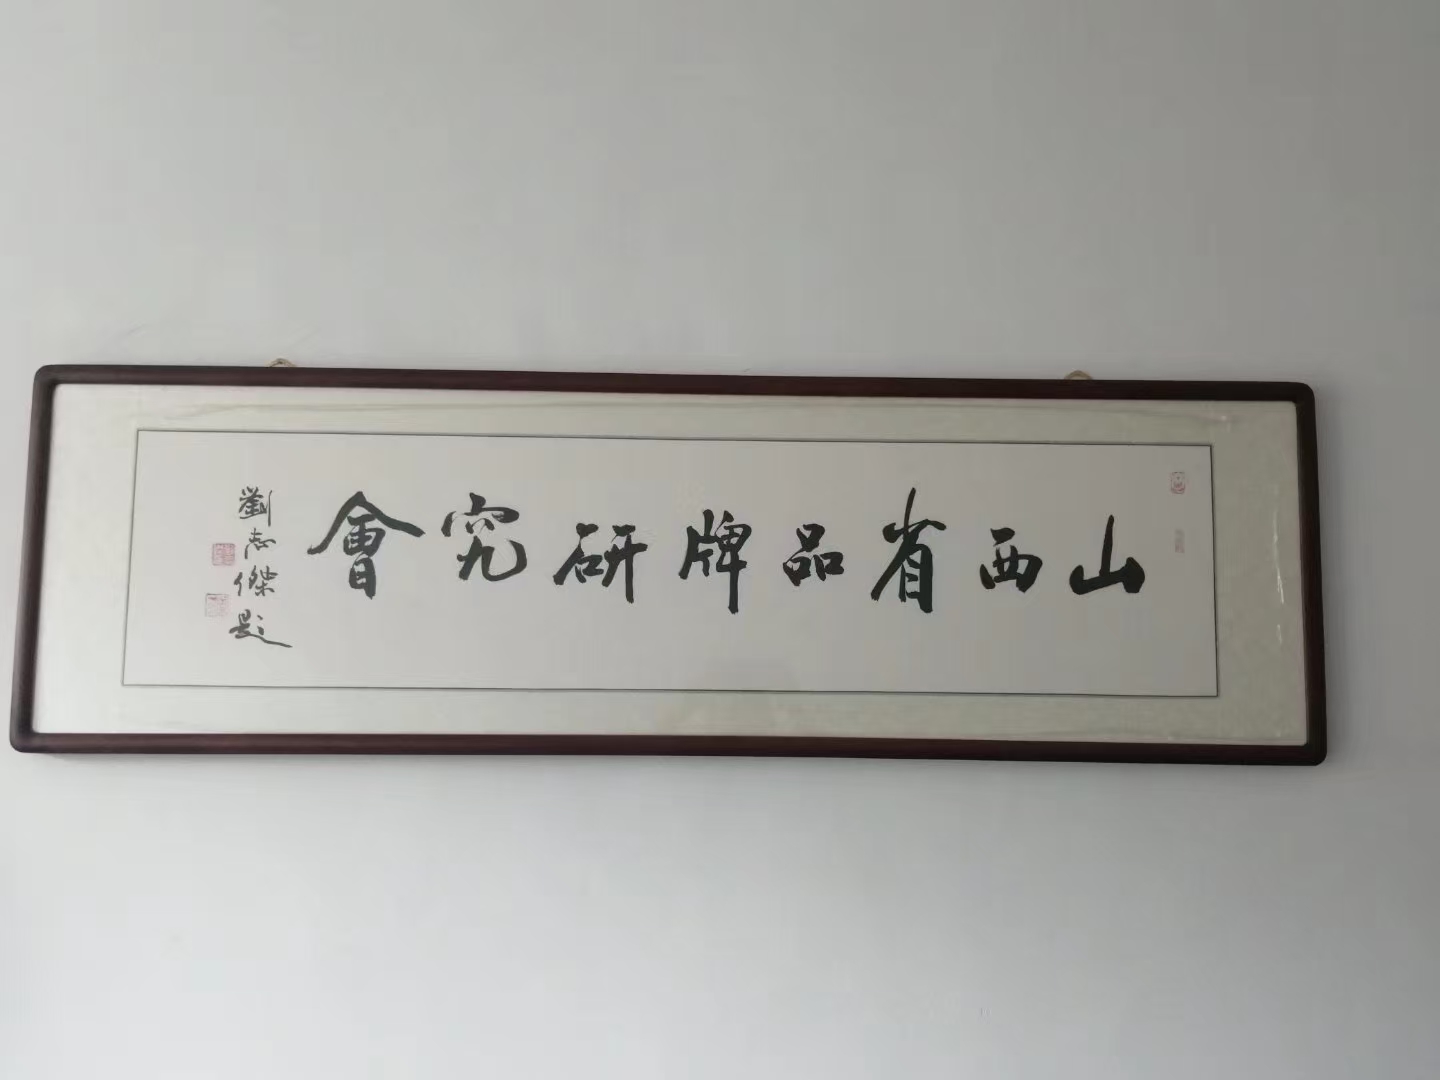 山西省品牌研究會
劉志傑題